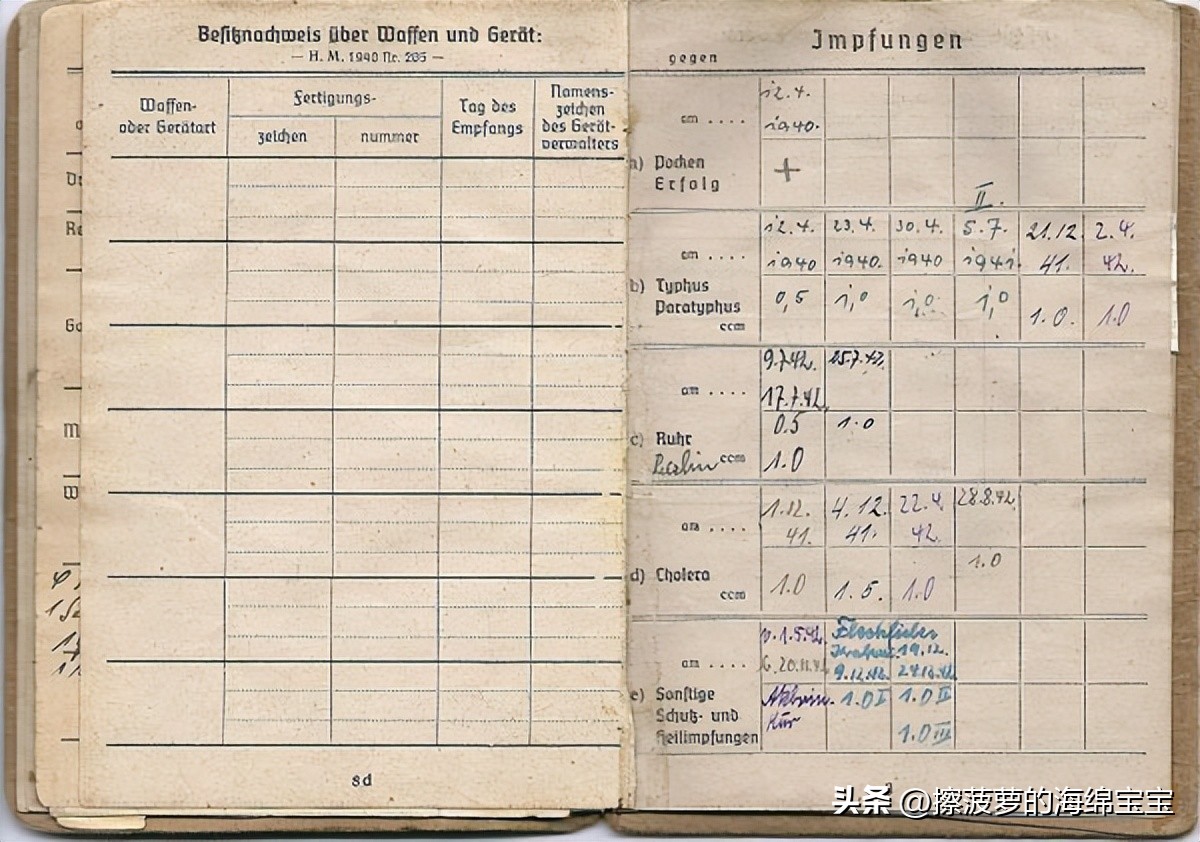 Besitznachweis über Waffen und Gerät:
— H. M. 1940 Nr. 205 —
Waffen-
oder Gerätart
Fertigungs-
zeichen
nummer
Tag des
Empfangs
Namens-
zeichen
des Gerät-
verwalters
8d
Impfungen
gegen
am ....
12.4. 1940.
a) Pocken
Erfolg
+
II.
am ....
12.4. 1940
23.4. 1940.
30.4. 1940
5.7. 1941.
21.12. 41.
2.4. 42.
b) Typhus
Paratyphus
ccm
0,5
1,0
1,0
1,0
1.0.
1.0
am ....
9.7.42.
17.7.42.
c) Ruhr
ccm
0.5
1.0
1.0
am ....
1.12. 41.
4.12. 41.
22.4. 42.
28.8.42.
d) Cholera
ccm
1.0
1.5.
1.0
1.0
am ....
v. 1.5.42.
19.12.
9.12.42.
e) Sonstige
Schutz- und
Heilimpfungen
Kur
1.0 I
1.0 II
1.0 III
头条 @擦菠萝的海绵宝宝